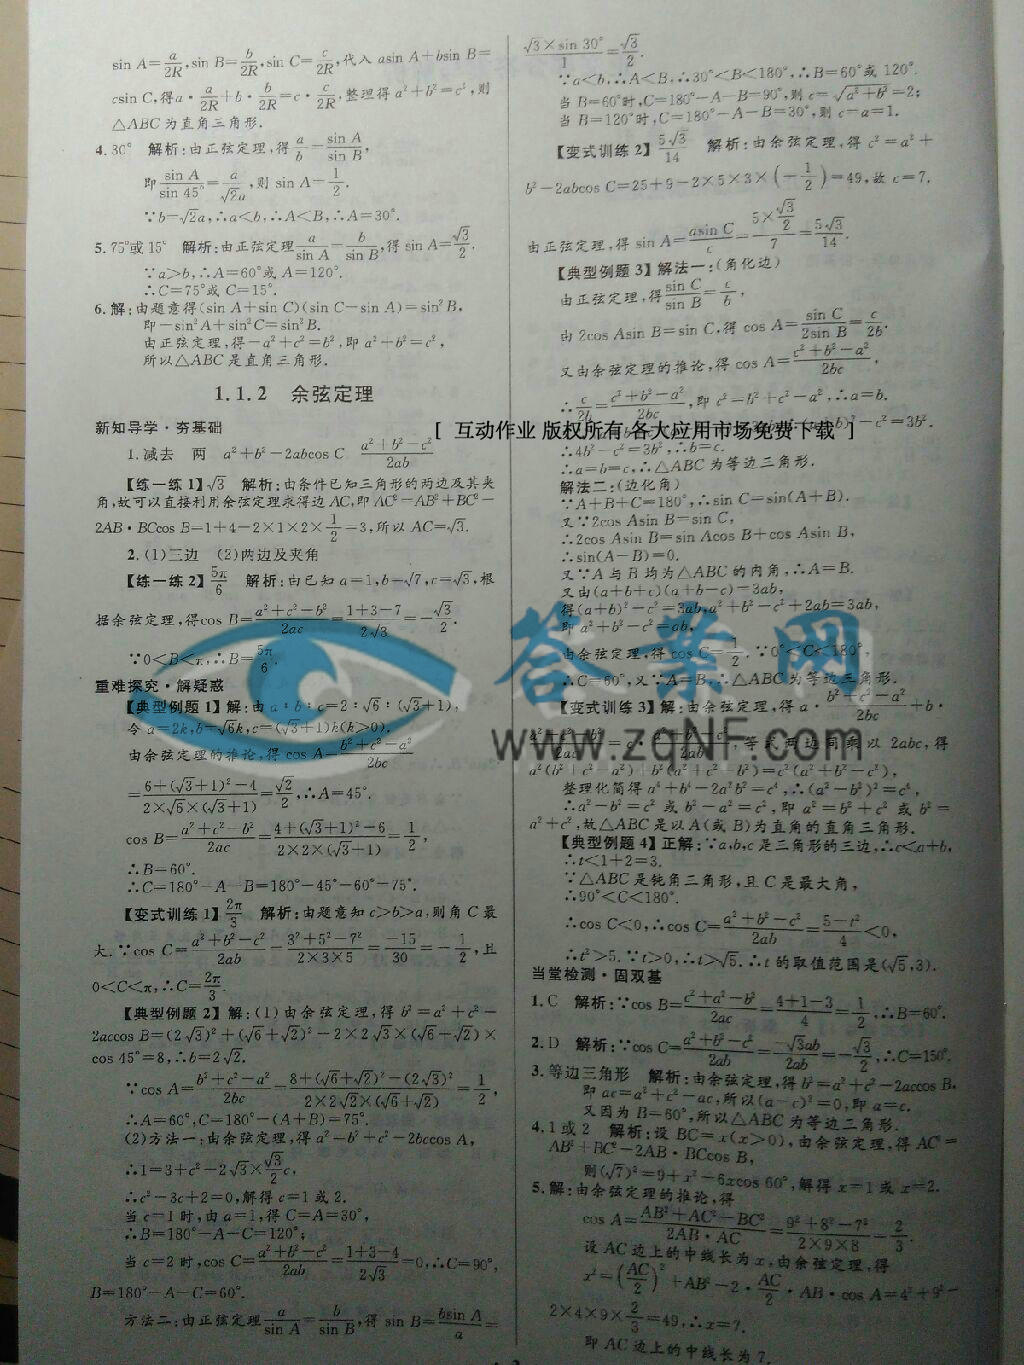 sin A=a/2R,sin B=b/2R,sin C=c/2R,代入 asin A+bsin B=
csin C,得a·a/2R+b·b/2R=c·c/2R,整理得a²+b²=c²,则
△ABC为直角三角形.
4.30° 解析:由正弦定理,得a/b=sin A/sin B,
即sin A/sin 45°=a/√2a,则 sin A=1/2.
∵b=√2a,∴a<b,∴A<B,∴A=30°.
5.75°或15° 解析:由正弦定理a/sin A=b/sin B,得sin A=√3/2.
∵a>b,∴A=60°或A=120°.
∴C=75°或C=15°.
6.解:由题意得(sin A+sin C)(sin C-sin A)=sin²B,
即-sin²A+sin²C=sin²B.
由正弦定理,得-a²+c²=b²,即a²+b²=c²,
所以△ABC是直角三角形.
1.1.2 余弦定理
新知导学·夯基础
1.减去 两 a²+b²-2abcos C a²+b²-c²/2ab
【练一练1】√3 解析:由条件已知三角形的两边及其夹
角,故可以直接利用余弦定理求得边AC,即AC²=AB²+BC²-
2AB·BCcos B=1+4-2×1×2×1/2=3,所以AC=√3.
2.(1)三边 (2)两边及夹角
【练一练2】5π/6 解析:由已知a=1,b=√7,c=√3,根
据余弦定理,得cos B=a²+c²-b²/2ac=1+3-7/2√3=-√3/2.
∵0<B<π,∴B=5π/6.
重难探究·解疑惑
【典型例题1】解:由a∶b∶c=2∶√6∶(√3+1),
令a=2k,b=√6k,c=(√3+1)k(k>0).
由余弦定理的推论,得cos A=b²+c²-a²/2bc
=6+(√3+1)²-4/2×√6×(√3+1)=√2/2,∴A=45°.
cos B=a²+c²-b²/2ac=4+(√3+1)²-6/2×2×(√3+1)=1/2,
∴B=60°.
∴C=180°-A-B=180°-45°-60°=75°.
【变式训练1】2π/3 解析:由题意知c>b>a,则角C最
大.∵cos C=a²+b²-c²/2ab=3²+5²-7²/2×3×5=-15/30=-1/2,且
0<C<π,∴C=2π/3.
【典型例题2】解:(1)由余弦定理,得b²=a²+c²-
2accos B=(2√3)²+(√6+√2)²-2×2√3×(√6+√2)×
cos 45°=8,∴b=2√2.
∵cos A=b²+c²-a²/2bc=8+(√6+√2)²-(2√3)²/2×2√2×(√6+√2)=1/2,
∴A=60°,C=180°-(A+B)=75°.
(2)方法一:由余弦定理,得a²=b²+c²-2bccos A,
∴1=3+c²-2√3×√3/2c,
∴c²-3c+2=0,解得c=1或2.
当c=1时,由a=1,得C=A=30°,
∴B=180°-A-C=120°;
当c=2时,cos C=a²+b²-c²/2ab=1+3-4/2√3=0,∴C=90°,
B=180°-A-C=60°.
方法二:由正弦定理a/sin A=b/sin B,得 sin B=bsin A/a=
√3×sin 30°/1=√3/2.
∵a<b,∴A<B,∴30°<B<180°,∴B=60°或120°.
当B=60°时,C=180°-A-B=90°,则c=√a²+b²=2;
当B=120°时,C=180°-A-B=30°,则c=a=1.
【变式训练2】5√3/14 解析:由余弦定理,得c²=a²+
b²-2abcos C=25+9-2×5×3×(-1/2)=49,故c=7.
由正弦定理,得 sin A=asin C/c=5×√3/2/7=5√3/14.
【典型例题3】解法一:(角化边)
由正弦定理,得sin C/sin B=c/b,
由2cos Asin B=sin C,得 cos A=sin C/2sin B=c/2b.
又由余弦定理的推论,得cos A=c²+b²-a²/2bc,
∴c/2b=c²+b²-a²/2bc,即c²=b²+c²-a²,∴a=b.
[ 互动作业 版权所有 各大应用市场免费下载 ]
-c²=3b²,
∴4b²-c²=3b²,∴b=c.
∴a=b=c,∴△ABC为等边三角形.
解法二:(边化角)
∵A+B+C=180°,∴sin C=sin(A+B).
又∵2cos Asin B=sin C,
∴2cos Asin B=sin Acos B+cos Asin B,
∴sin(A-B)=0.
又∵A与B均为△ABC的内角,∴A=B.
又由(a+b+c)(a+b-c)=3ab,
得(a+b)²-c²=3ab,a²+b²-c²+2ab=3ab,
即a²+b²-c²=ab,
由余弦定理,得cos C=1/2.∵0°<C<180°,
∴C=60°,又∵A=B,∴△ABC为等边三角形.
【变式训练3】解:由余弦定理,得a·b²+c²-a²/2bc+b·
等式两边同乘以2abc,得
a²(b²+c²-a²)+b²(a²+c²-b²)=c²(a²+b²-c²),
整理化简得a⁴+b⁴-2a²b²=c⁴,∴(a²-b²)²=c⁴,
∴a²-b²=c²或b²-a²=c²,即a²=b²+c²或b²=
a²+c²,故△ABC是以A(或B)为直角的直角三角形.
【典型例题4】正解:∵a,b,c是三角形的三边,∴c<a+b,
∴t<1+2=3.
∵△ABC是钝角三角形,且C是最大角,
∴90°<C<180°.
∴cos C<0,∴cos C=a²+b²-c²/2ab=5-t²/4<0,
∴t²>5.∵t>0,∴t>√5.∴t的取值范围是(√5,3).
当堂检测·固双基
1.C 解析:∵cos B=c²+a²-b²/2ac=4+1-3/4=1/2,∴B=60°.
2.D 解析:∵cos C=a²+b²-c²/2ab=-√3ab/2ab=-√3/2,∴C=150°.
3.等边三角形 解析:由余弦定理,得b²=a²+c²-2accos B,
即ac=a²+c²-ac,所以(a-c)²=0,即a=c.
又因为B=60°,所以△ABC为等边三角形.
4.1或2 解析:设BC=x(x>0),由余弦定理,得AC²=
AB²+BC²-2AB·BCcos B,
则(√7)²=9+x²-6xcos 60°,解得x=1或x=2.
5.解:由余弦定理的推论,得
cos A=AB²+AC²-BC²/2AB·AC=9²+8²-7²/2×9×8=2/3.
设AC边上的中线长为x,由余弦定理,得
x²=(AC/2)²+AB²-2·AC/2·AB·cos A=4²+9²-
2×4×9×2/3=49,∴x=7.
即AC边上的中线长为7.
答案网
www.zqNF.com